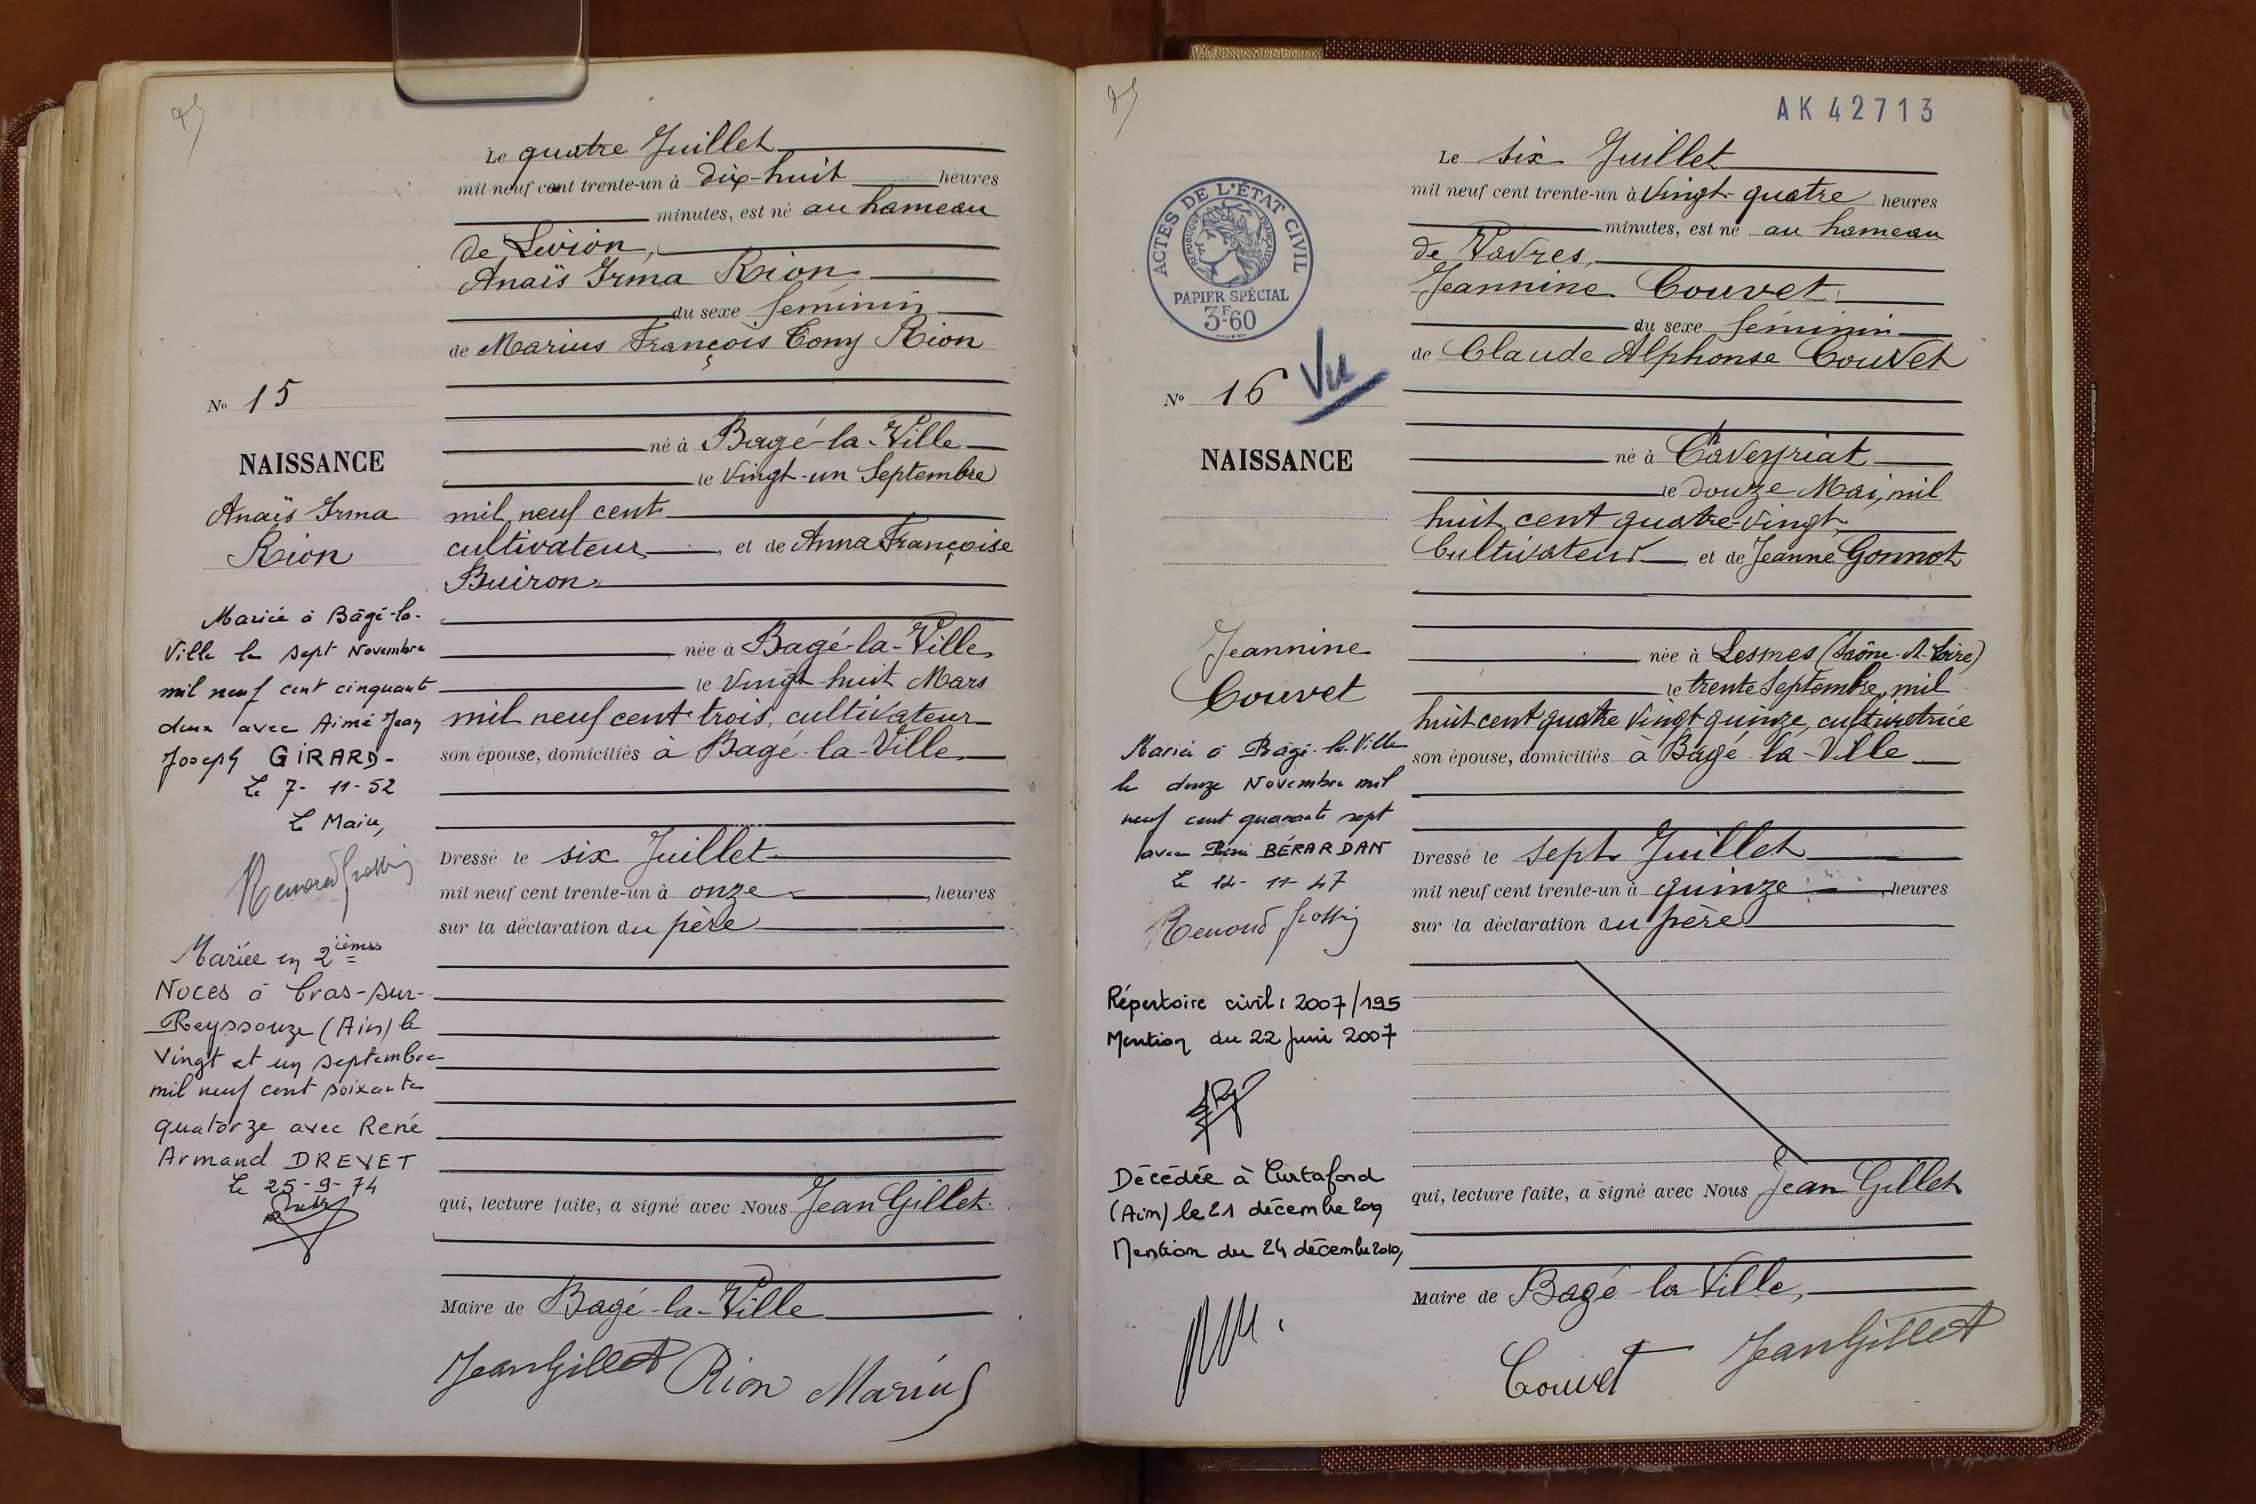 Le quatre Juillet
mil neuf cent trente-un à dix-huit heures
minutes, est né au hameau
de Livion,
Anaïs Irma Rion
du sexe féminin
de Marius François Tony Rion
No 15
né à Bagé-la-Ville
NAISSANCE
le vingt-un Septembre
Anaïs Irma
mil neuf cent
Rion
cultivateur, et de Anna Françoise
Buiron
née à Bagé-la-Ville
le vingt-huit Mars
mil neuf cent trois, cultivateur
son épouse, domiciliés à Bagé-la-Ville
Dressé le six Juillet
mil neuf cent trente-un à onze, heures
sur la déclaration du père
qui, lecture faite, a signé avec Nous Jean Gillet
Maire de Bagé-la-Ville
Jean Gillet Rion Marius
Mariée à Bâgé-la-
Ville le sept Novembre
mil neuf cent cinquante
deux avec Aimé Jean
Joseph GIRARD-
Le 7-11-52
Le Maire,
Mariée en 2ièmes
Noces à Cras-sur-
Reyssouze (Ain) le
Vingt et un septembre
mil neuf cent soixante
quatorze avec René
Armand DREVET
Le 25-9-74
AK 42713
ACTES DE L'ÉTAT CIVIL
RÉPUBLIQUE FRANÇAISE
PAPIER SPÉCIAL
3F60
Le six Juillet
mil neuf cent trente-un à vingt-quatre heures
minutes, est né au hameau
de Vavres,
Jeannine Couvet
du sexe féminin
de Claude Alphonse Couvet
No 16 Vu
NAISSANCE
né à Chaveyriat
le douze Mai, mil
huit cent quatre-vingt,
Cultivateur, et de Jeanne Gonnot
née à Lesmes (Saône-&-Loire)
le trente Septembre, mil
huit cent quatre vingt quinze, cultivatrice
son épouse, domiciliés à Bagé-la-Ville
Dressé le sept Juillet
mil neuf cent trente-un à quinze, heures
sur la déclaration du père
qui, lecture faite, a signé avec Nous Jean Gillet
Maire de Bagé-la-Ville,
Couvet Jean Gillet
Jeannine
Couvet
Mariée à Bâgé-la-Ville
le douze Novembre mil
neuf cent quarante sept
avec BÉRARDAN
Répertoire civil : 2007/195
Mention du 22 juin 2007
Décédée à Curtafond
(Ain) le 21 décembre
Mention du 24 décembre 2010,